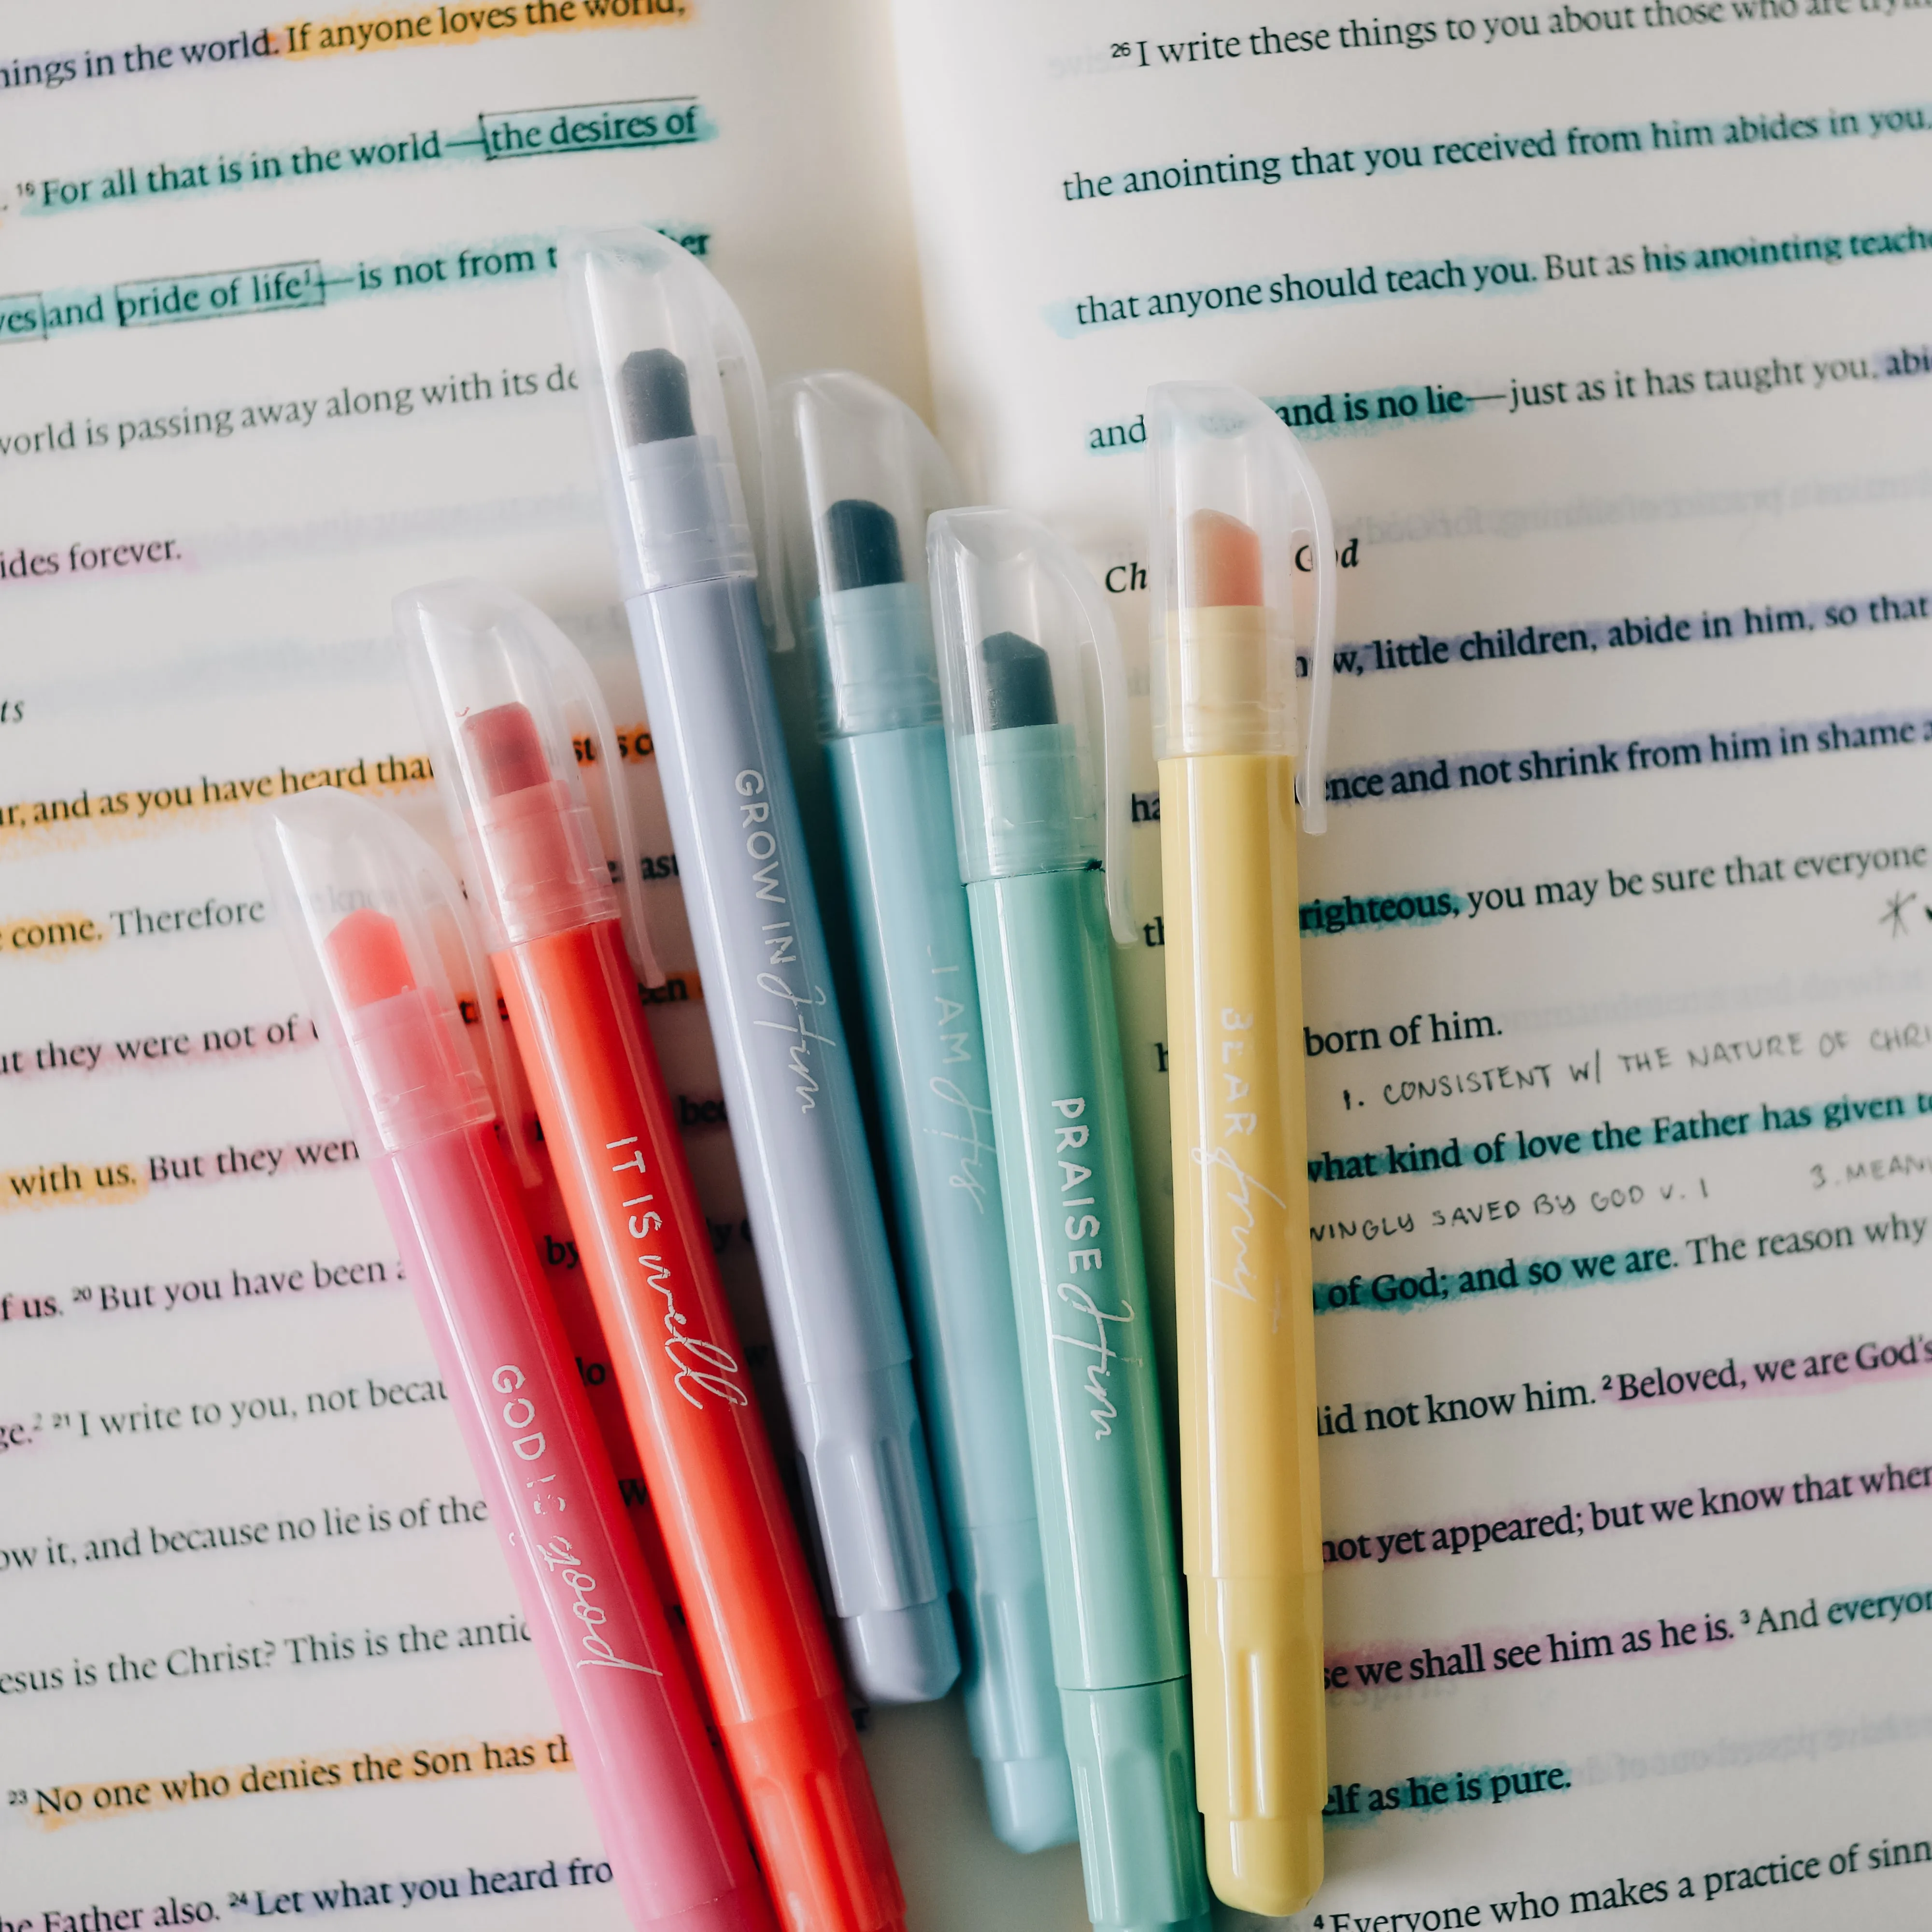 things in the world. If anyone loves the world,
. 16 For all that is in the world—the desires of
yes and pride of life1—is not from t
world is passing away along with its de
ides forever.
ts
ur, and as you have heard that
come. Therefore
ut they were not of
with us. But they wen
f us. 20 But you have been a
ge.2 21 I write to you, not becau
ow it, and because no lie is of the
esus is the Christ? This is the antic
23 No one who denies the Son has th
he Father also. 24 Let what you heard fro
26 I write these things to you about those who are tryin
the anointing that you received from him abides in you,
that anyone should teach you. But as his anointing teache
and and is no lie—just as it has taught you, abi
Ch God
now, little children, abide in him, so that
ha ence and not shrink from him in shame a
th righteous, you may be sure that everyone
born of him.
1. CONSISTENT W/ THE NATURE OF CHRI
what kind of love the Father has given to
VINGLY SAVED BY GOD V. 1 3. MEAN
of God; and so we are. The reason why
did not know him. 2 Beloved, we are God's
not yet appeared; but we know that when
se we shall see him as he is. 3 And everyon
elf as he is pure.
4 Everyone who makes a practice of sinn
GOD IS good
IT IS well
GROW IN Him
I AM His
PRAISE Him
BEAR fruit